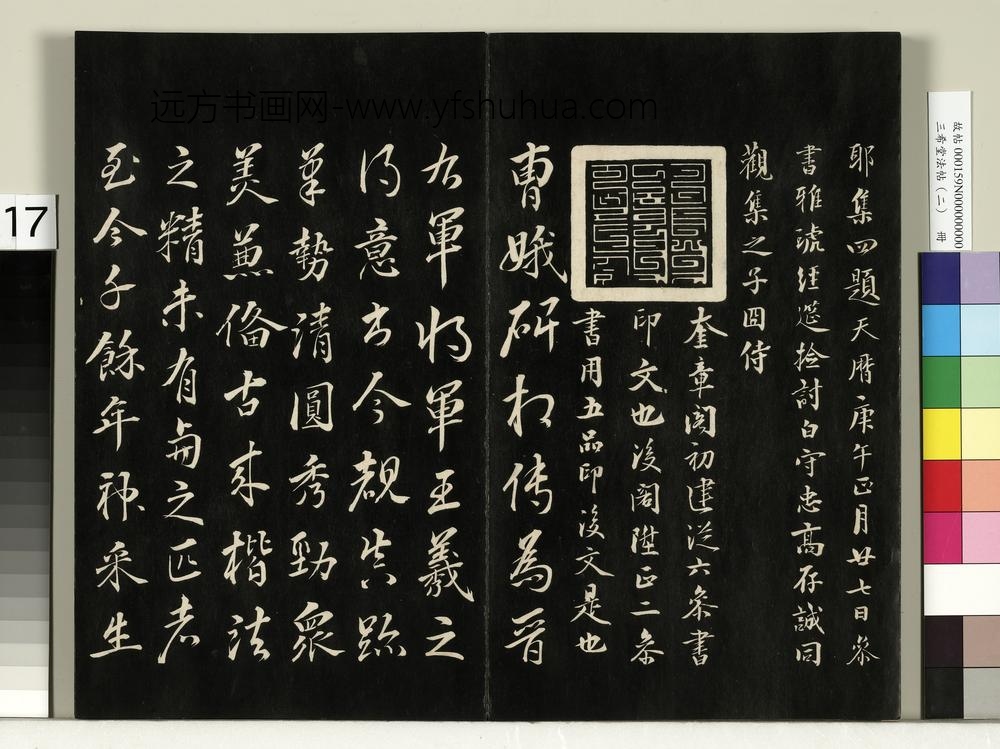 耶集四題天曆庚午正月廿七日叅
書雅琥經筵撿討白守忠高存誠同
觀集之子囡侍
奎章閣初建從六叅書
印文也後閣陞正二叅
書用五品印後文是也
曹娥碑相傳為晉
右軍將軍王羲之
得意書今覩真跡
筆勢清圓秀勁衆
美兼備古來楷法
之精未有與之匹者
至今千餘年神采生
远方书画网-www.yfshuhua.com
17
故帖 000159N000000000
三希堂法帖(二) 冊